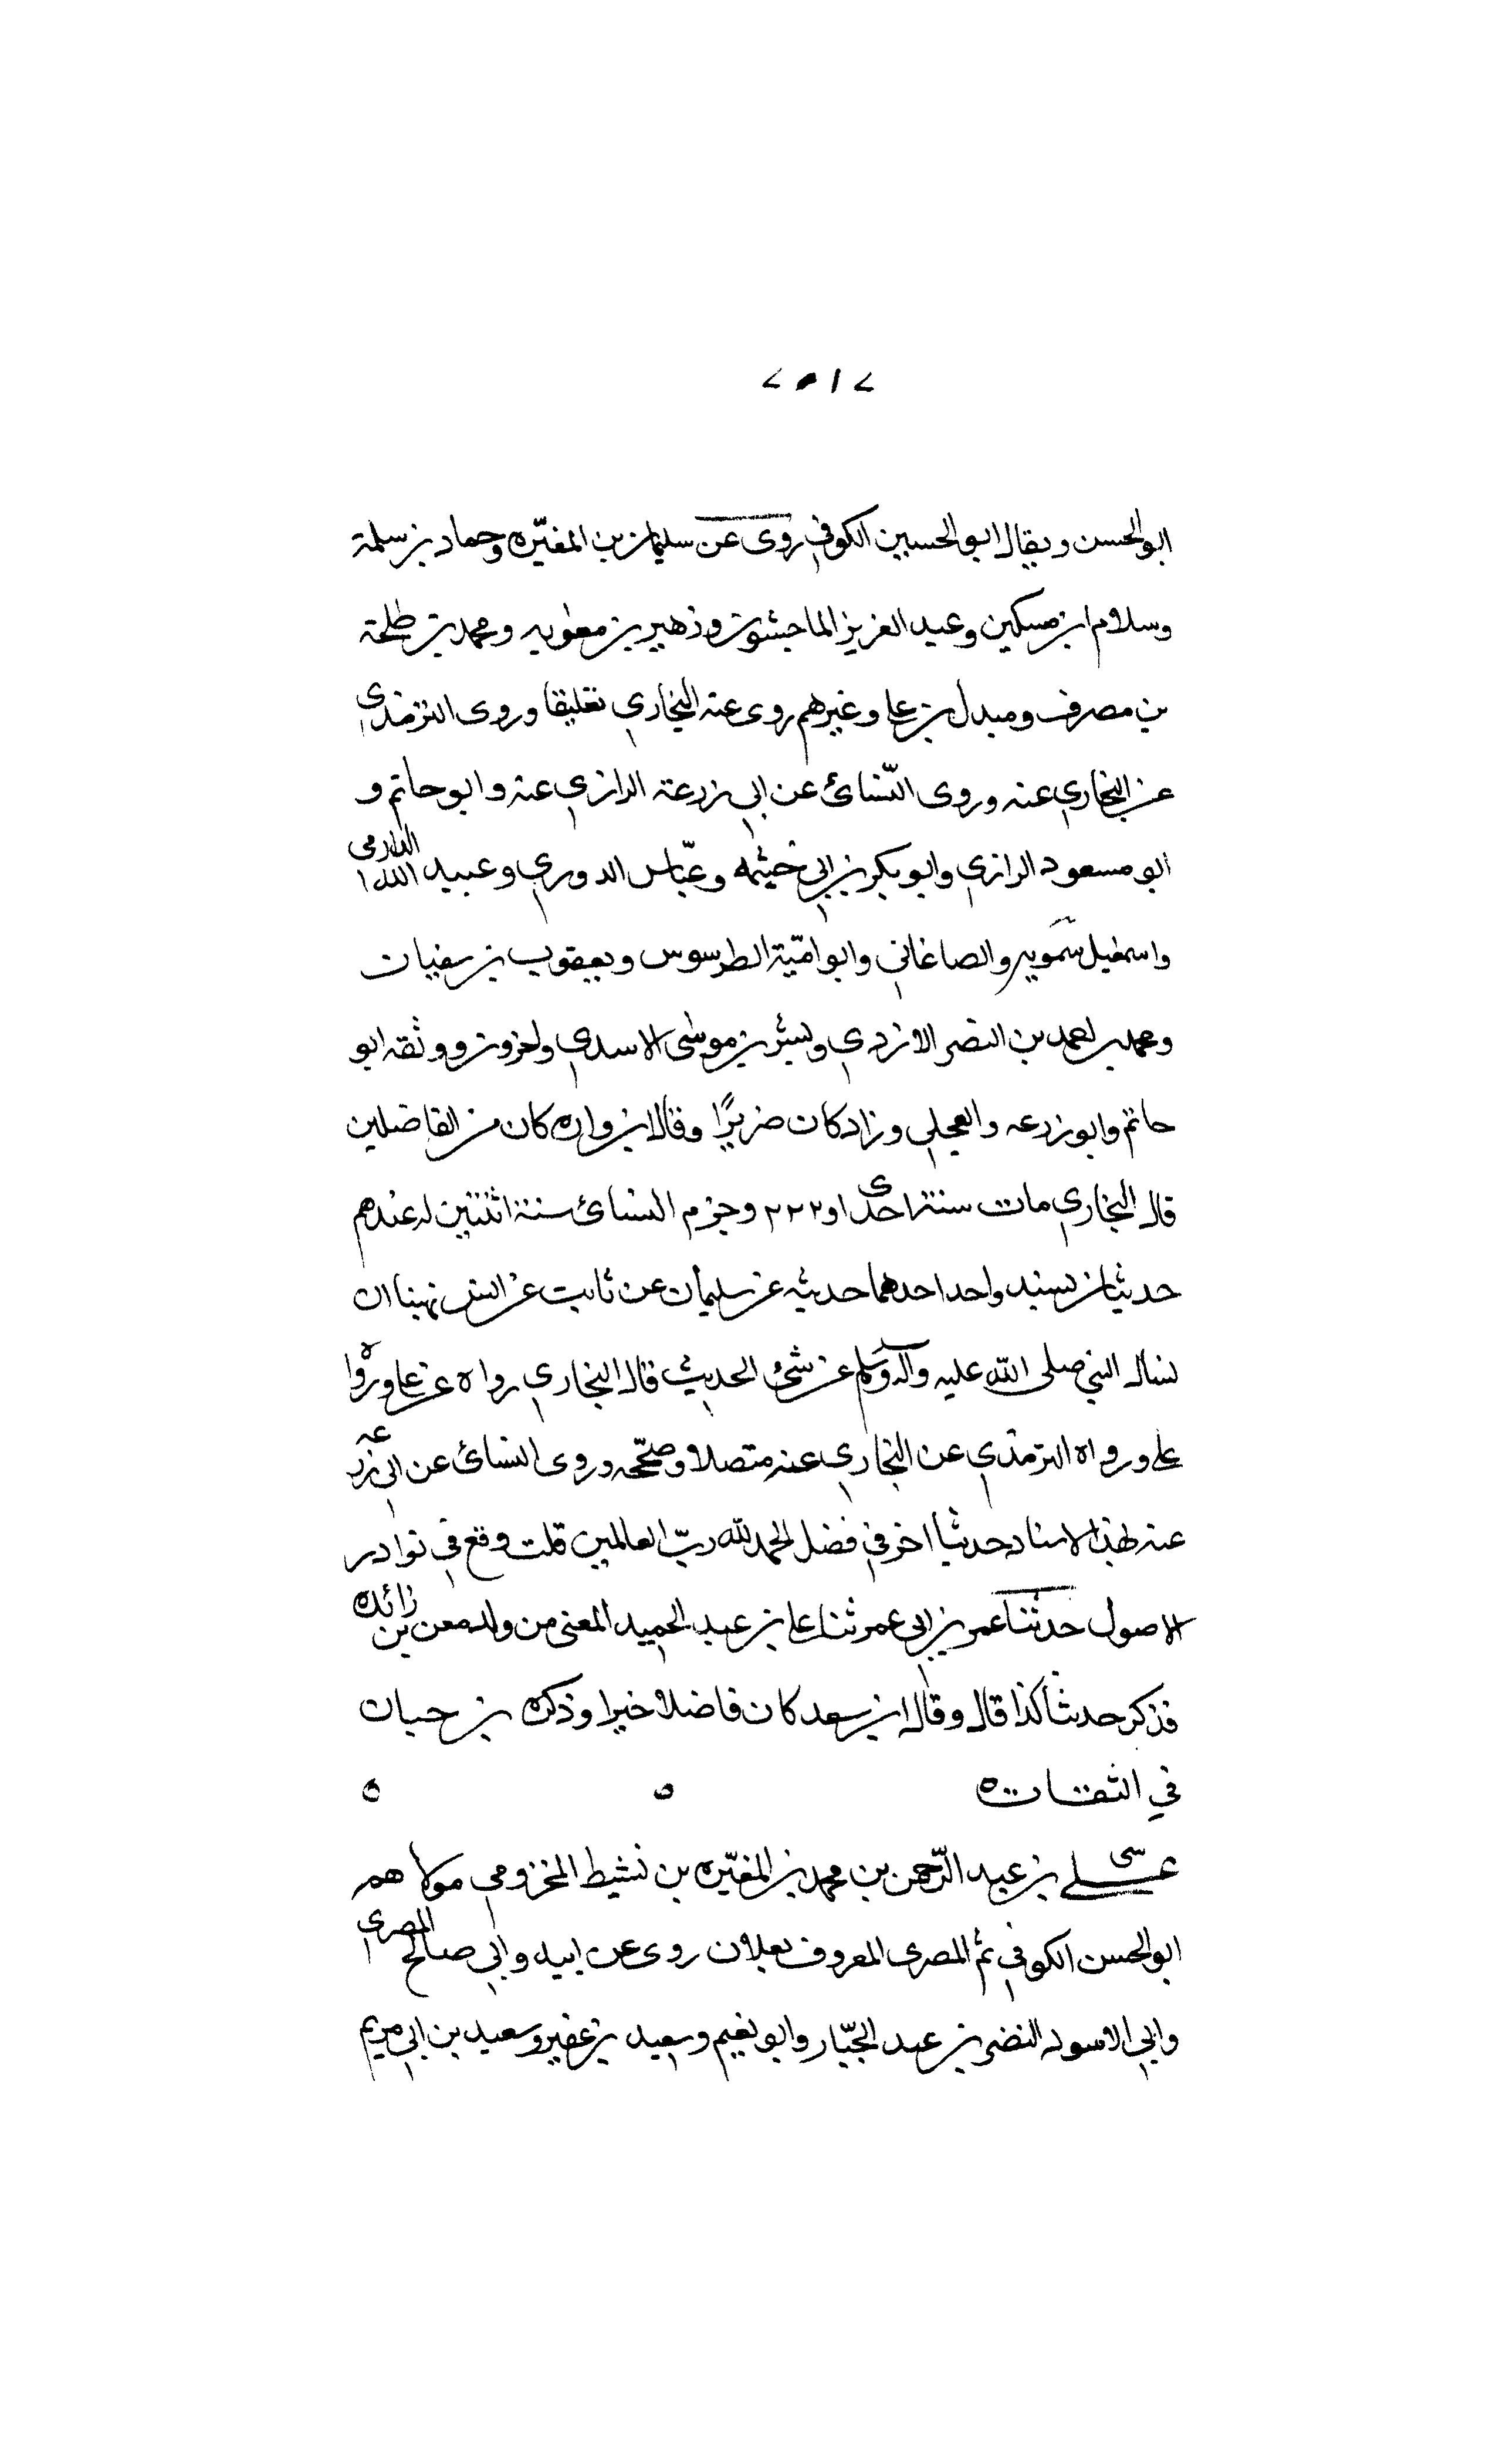 ابو الحسن ويقال ابو الحسين الكوفي روى عن سليمان بن المغيره وحماد بن سلمة
وسلام ابن مسكين وعبد العزيز الماجشون وزهير بن معويه ومحمد بن طلحة
بن مصرف ومندل بن علي وغيرهم روى عنه البخاري تعليقا وروى الترمذي
عن البخاري عنه وروى النّسائ عن ابي زرعة الرازي عنه وابو حاتم و
ابو مسعود الرازي وابو بكر بن ابي خيثمه وعبّاس الدوري وعبيد الله الدارمي
واسمعيل سمّويه والصاغاني وابو اميّة الطرسوس ويعقوب بن سفيان
ومحمد بن احمد بن النضر الازدي وبشر بن موسى الاسدي واخرون ووثقه ابو
حاتم وابو زرعه والعجلي وزاد كان ضريرًا وقال ابن واره كان من الفاضلين
قال البخاري مات سنة احدى او ٢٢٢ وجزم النسائ سنة اثنتين له عندهم
حديثان بسند واحد احدهما حديثه عن سليمان عن ثابت عن انس نهينا ان
نسأل النبي صلى الله عليه وآله وسلم عن شئ الحديث قال البخاري رواه عن علي ورواه
علي ورواه الترمذي عن البخاري عنه متصلا وصحّحه وروى النسائ عن ابي زرعه
عنه بهذا الاسناد حديثا اخر في فضل الحمد لله ربّ العالمين قلت وقع في نوادر
الاصول حدثنا عمر بن ابي عمر ثنا علي بن عبد الحميد المعنى من ولد معن بن زائده
فذكر حديثا كذا قال وقال ابن سعد كان فاضلا خيرا وذكره بن حبان
في الثقات ه ه ه
عـسى علي بن عبد الرّحمن بن محمد بن المغيّره بن نشيط المخزومي مولاهم
ابو الحسن الكوفي ثم المصرى المعروف بعلان روى عن ابيه وابي صالح المصرى
وابي الاسود النضر بن عبد الجبّار وابو نعيم وسعيد بن عفير وسعيد بن ابي مريم